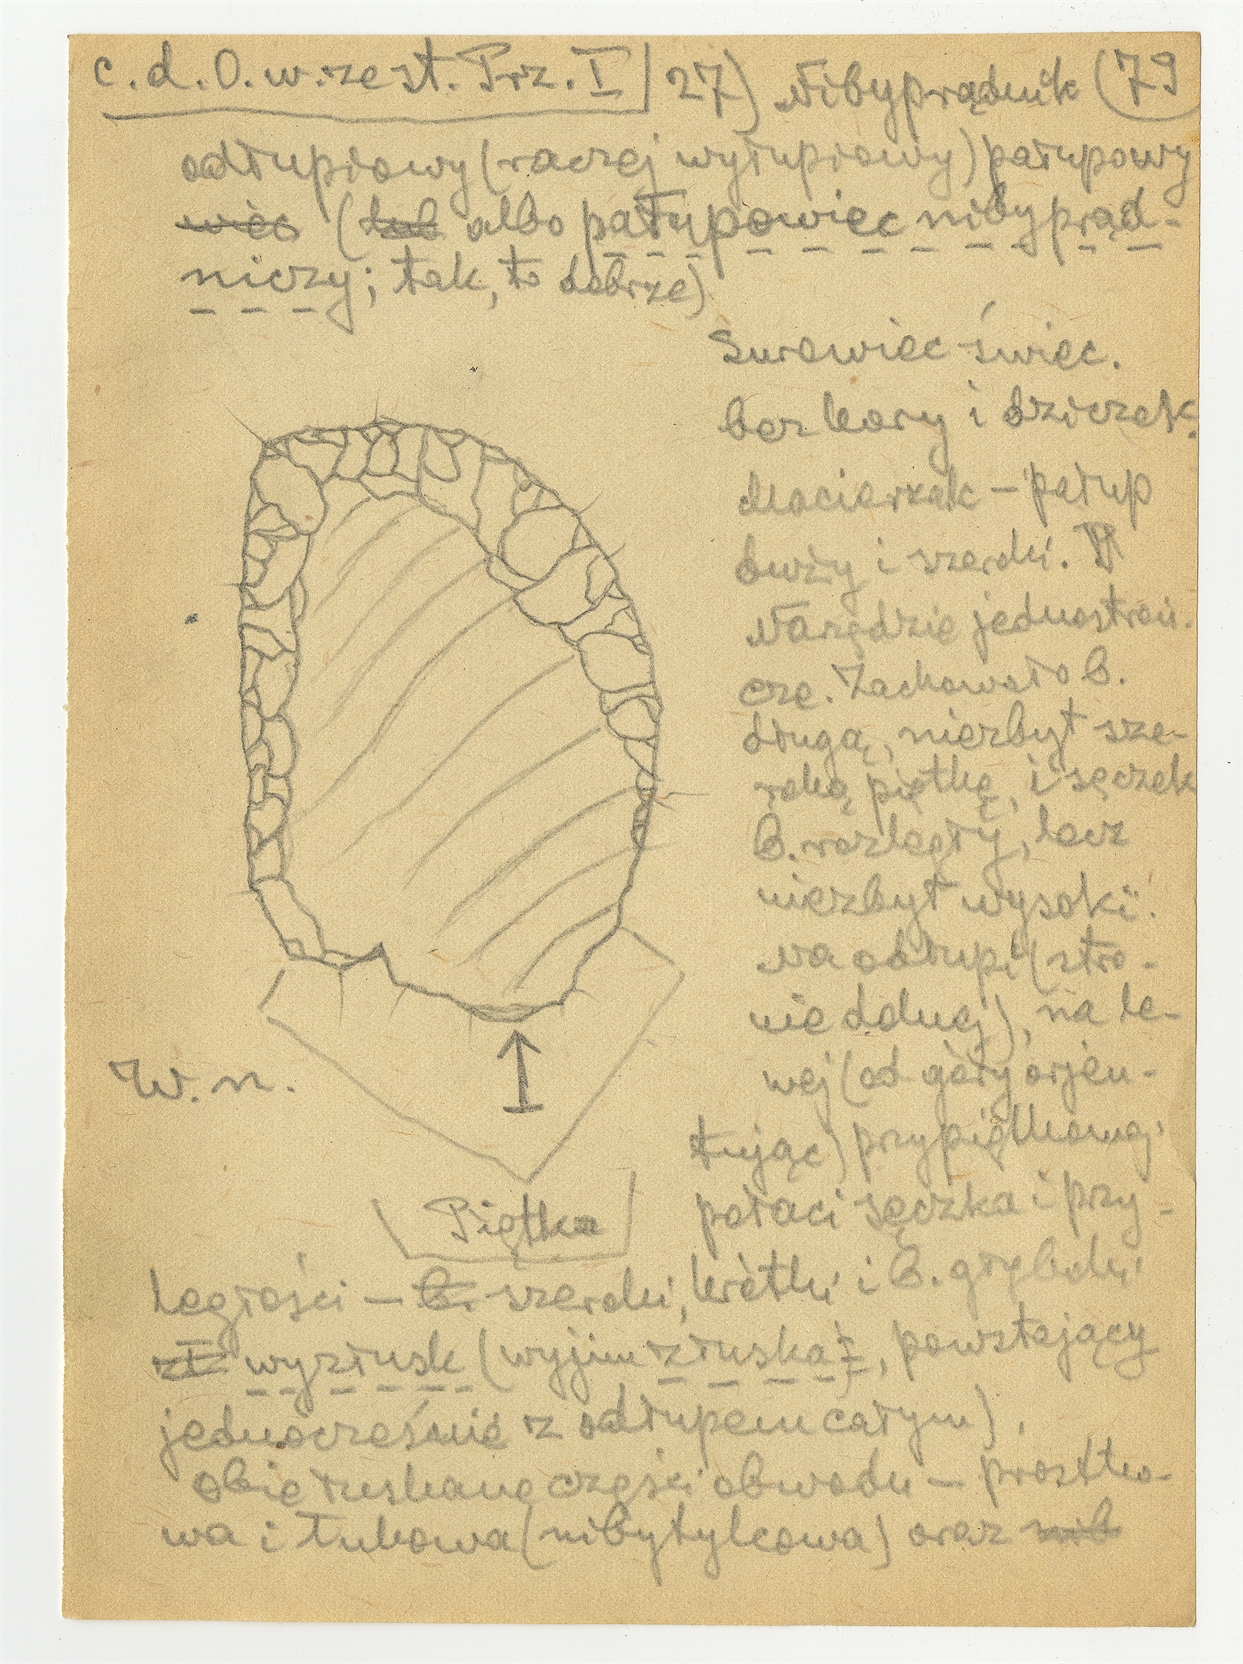 c.d.O.w.zest.Prz.I 27) Nibyprądnik (79
odłupiowy (raczej wyłupiowy) patupowy
więc (lub albo patupowiec nibyprąd-
niczy; tak, to dobrze)
Surowiec świec.
bez kory i dziczek.
Macierzak - patup
duży i szeroki.
Narzędzie jednostroń.
cze. Zachowało b.
długą, niezbyt sze-
roką piętkę, i sęczek
b. rozległy, lecz
niezbyt wysoki.
Na odłupi (stro-
nie dolnej), na le-
wej (od góry orjen-
tując) przypiętkowej
połaci sęczka i przy-
W. n.
Piętka
ległości - b. szeroki, krótki i b. głęboki
zł wyzłusk (wyjim złuska), powstający
jednocześnie z odłupem całym).
Obie łuskane części obwodu - prostko-
wa i łukowa (nibytylcowa) oraz nib